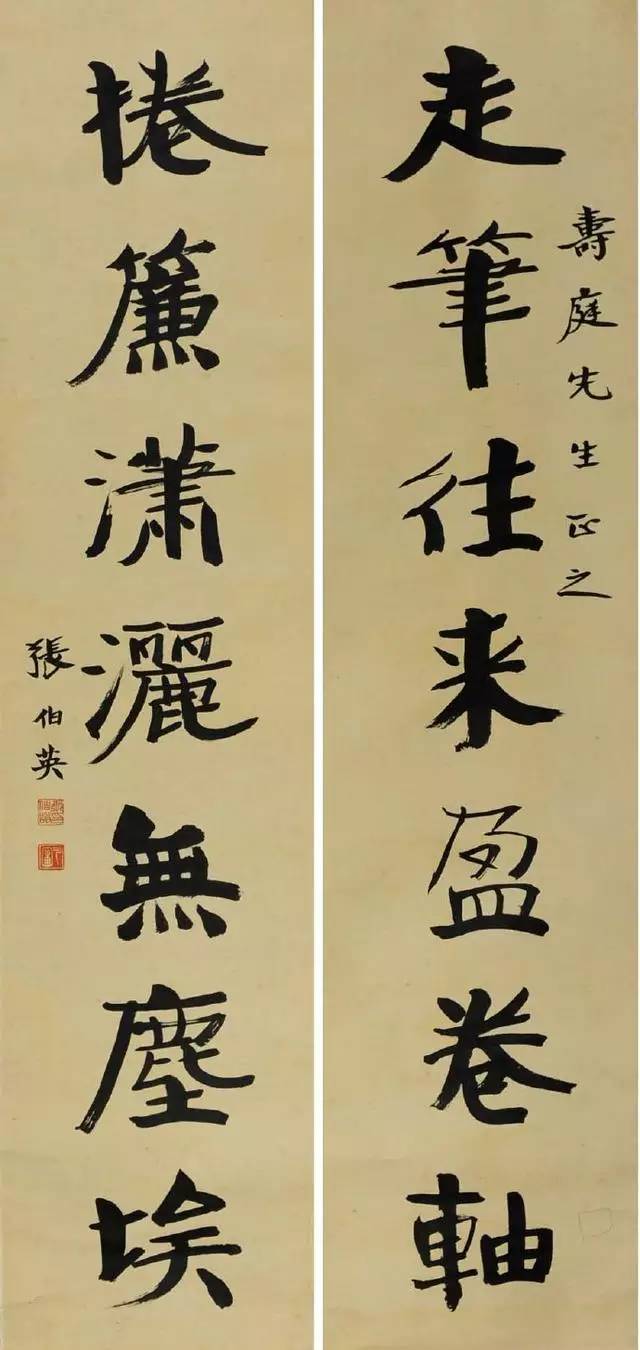 走筆往来盈卷軸
壽庭先生正之
捲簾潇灑無塵埃
張伯英